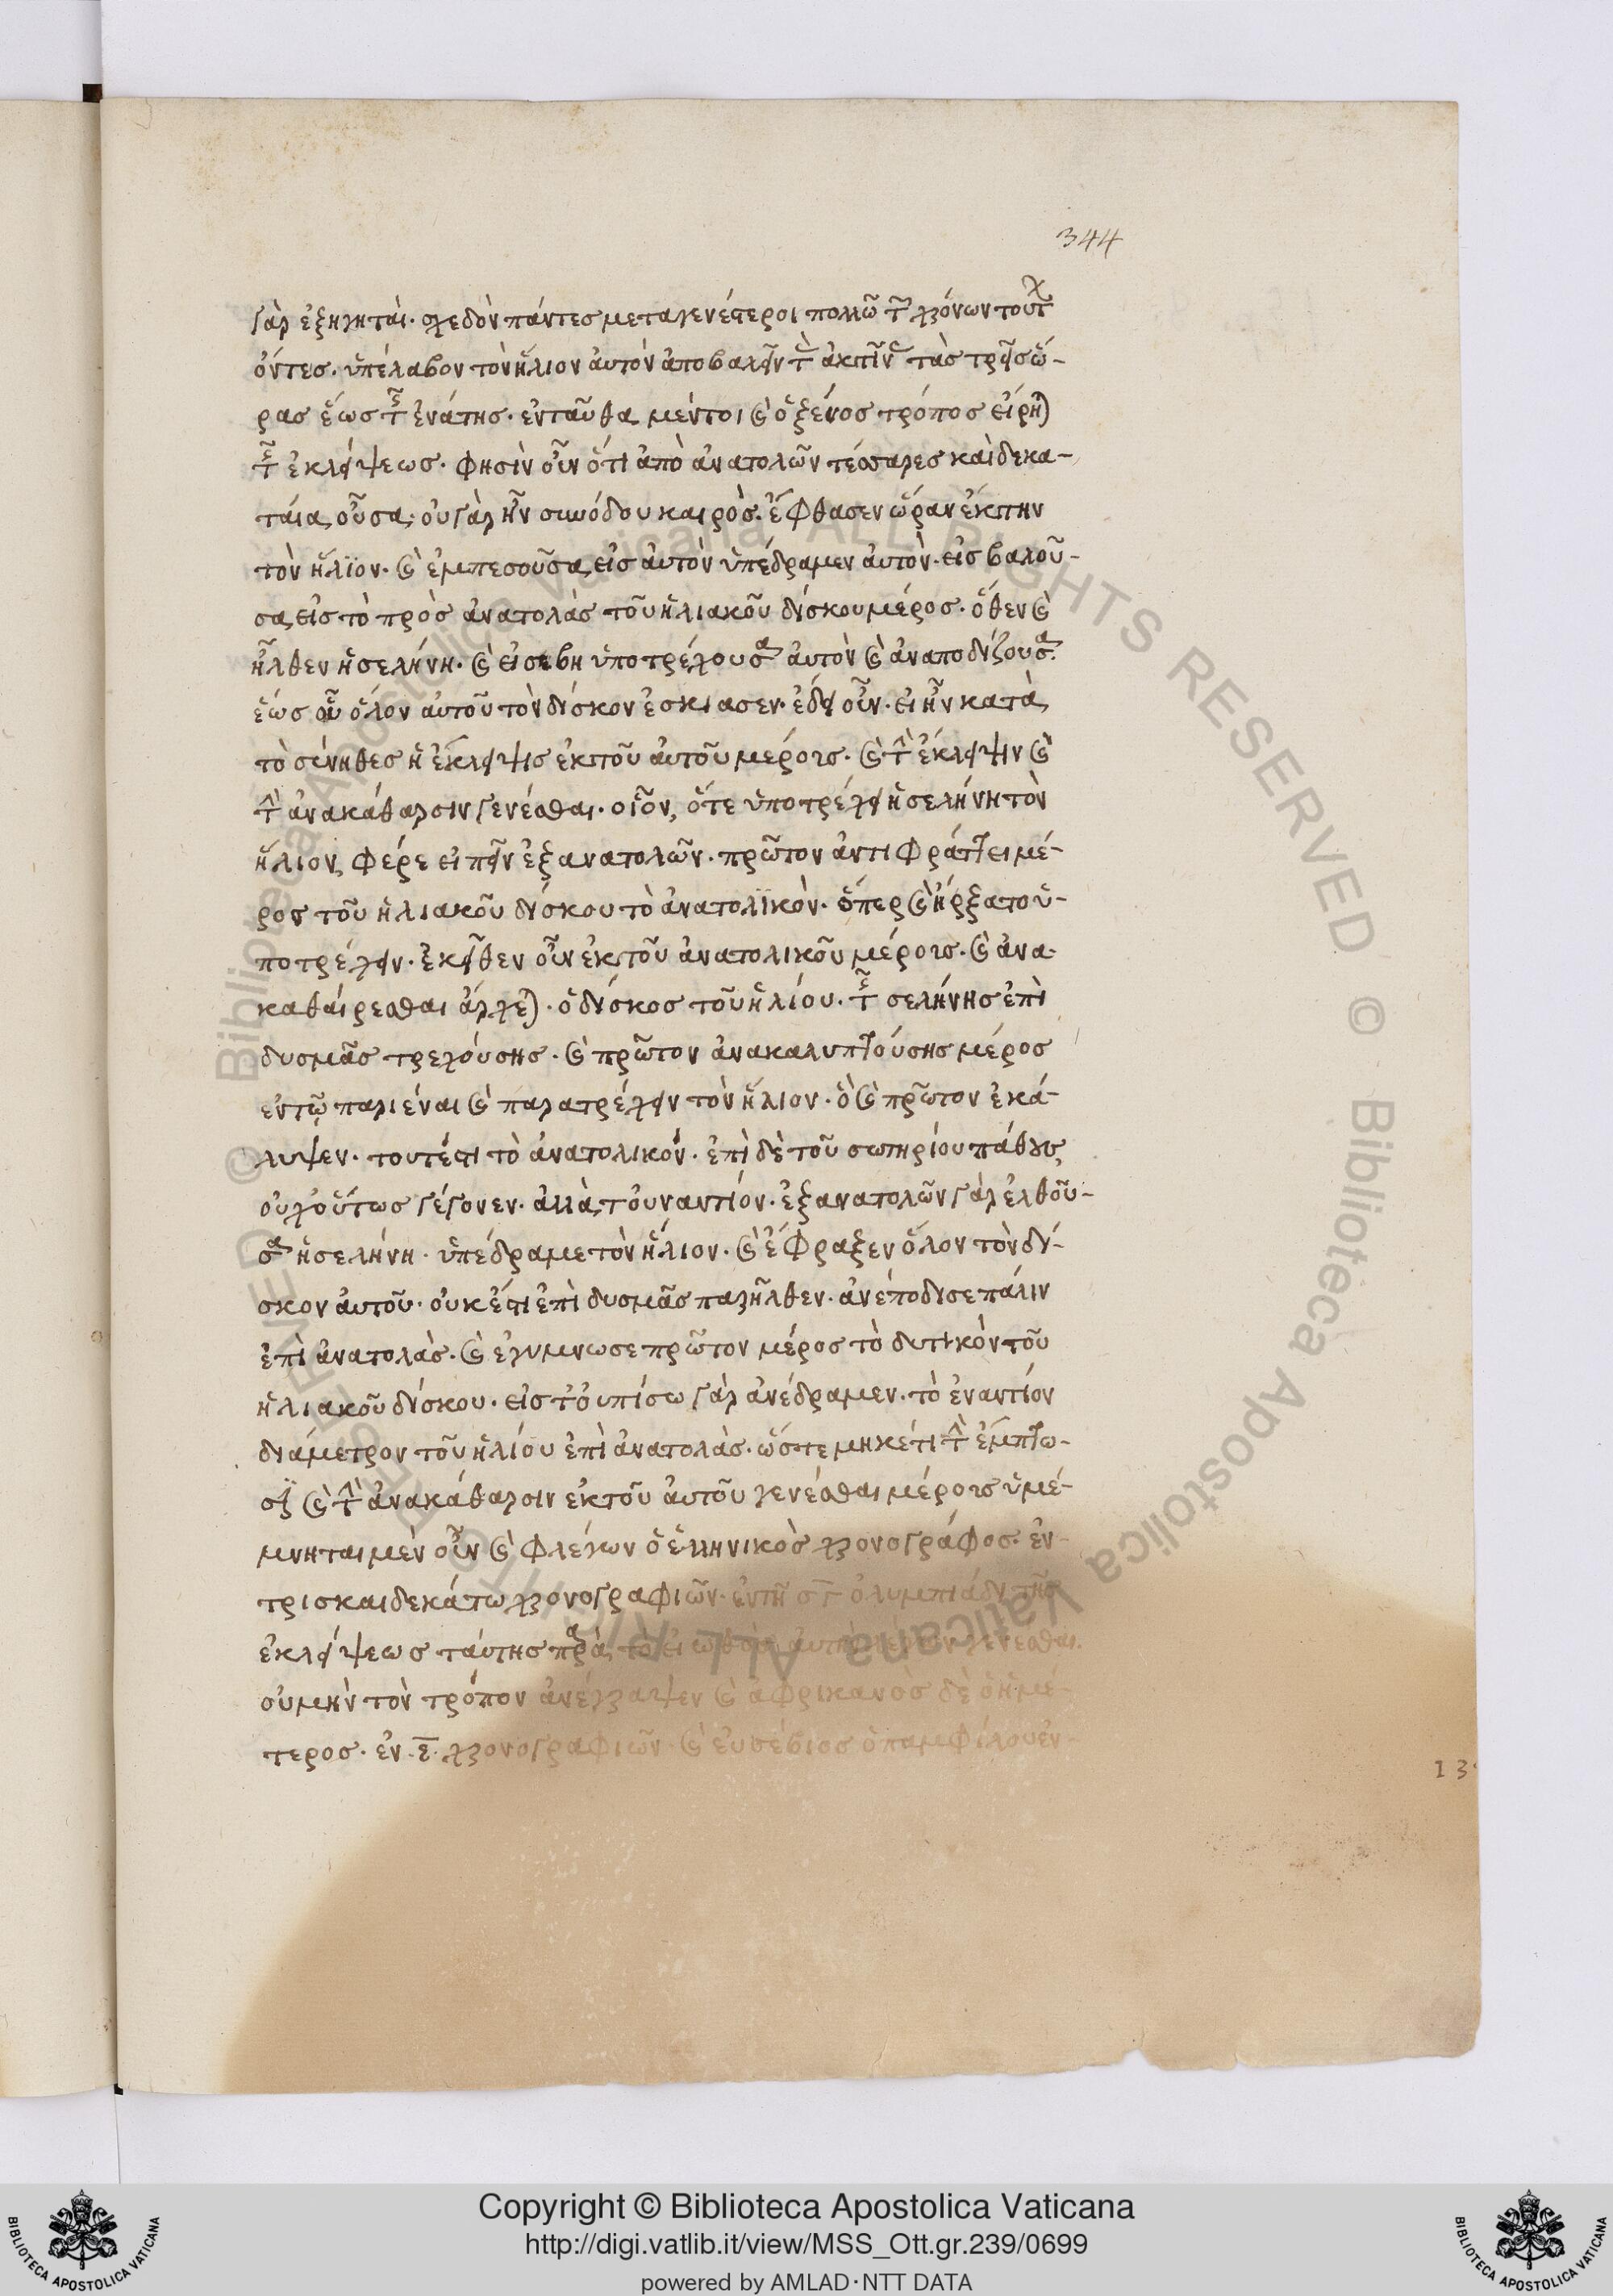 344
γὰρ ἐξηγηταί· σχεδὸν πάντες μεταγενέστεροι πολλῶ τῶν χρόνων τούτ
ὄντες· ὑπέλαβον τὸν ἥλιον αὐτὸν ἀποβαλεῖν τὰς ἀκτῖν τὰς τρεῖς ὥ-
ρας ἕως τῆς ἐνάτης· ἐνταῦθα μέντοι καὶ ὁ ξένος τρόπος εἴρηται
τῆς ἐκλείψεως· φησὶν οὖν ὅτι ἀπὸ ἀνατολῶν τέσσαρες καὶ δεκα-
ταία οὖσα· οὐ γὰρ ἦν συνόδου καιρός· ἔφθασεν ὥραν ἕκτην
τὸν ἥλϊον· καὶ ἐμπεσοῦσα εἰς αὐτὸν ὑπέδραμεν αὐτὸν· εἰσβαλοῦ-
σα εἰς τὸ πρὸς ἀνατολὰς τοῦ ἡλιακοῦ δίσκου μέρος· ὅθεν καὶ
ἦλθεν ἡ σελήνη· καὶ εἰσέβη ὑποτρέχουσα αὐτὸν καὶ ἀναποδίζουσα·
ἕως οὗ ὅλον αὐτοῦ τὸν δίσκον ἐσκίασεν· ἔδει οὖν· εἰ ἦν κατὰ
τὸ σύνηθες ἡ ἔκλειψις ἐκ τοῦ αὐτοῦ μέρους· καὶ τὴν ἔκλειψιν καὶ
τὴν ἀνακάθαρσιν γενέσθαι· οἷον, ὅτε ὑποτρέχει ἡ σελήνη τὸν
ἥλιον, φέρε εἰπεῖν ἐξ ανατολῶν· πρῶτον ἀντιφράττει μέ-
ρος τοῦ ἡλιακοῦ δίσκου τὸ ἀνατολϊκὸν· ὅπερ καὶ ἤρξατο ὑ-
ποτρέχειν· ἐκεῖθεν οὖν ἐκ τοῦ ἀνατολικοῦ μέρους· καὶ ἀνα-
καθαίρεσθαι ἄρχεται· ὁ δίσκος τοῦ ἡλίου· τῆς σελήνης ἐπὶ
δυσμᾶς τρεχούσης· καὶ πρῶτον ἀνακαλυπτούσης μέρος
ἐν τῷ παριέναι καὶ παρατρέχειν τὸν ἥλιον· ὃ καὶ πρῶτον ἐκά-
λυψεν· τουτέστι τὸ ἀνατολικόν· ἐπὶ δὲ τοῦ σωτηρίου πάθους
οὐχ οὕτως γέγονεν· ἀλλὰ τοὐναντίον· ἐξ ανατολῶν γὰρ ἐλθοῦ-
σα ἡ σελήνη· ὑπέδραμε τὸν ἥλιον· καὶ ἔφραξεν ὅλον τὸν δί-
σκον αὐτοῦ· οὐκ ἔτι ἐπὶ δυσμᾶς παρῆλθεν· ἀνεπόδισε πάλιν
ἐπὶ ἀνατολὰς· καὶ ἐγύμνωσε πρῶτον μέρος τὸ δυτικὸν τοῦ
ἡλιακοῦ δίσκου· εἰς τὸ ὀπίσω γὰρ ἀνέδραμεν· τὸ ἐναντίον
διάμετρον τοῦ ἡλίου ἐπὶ ἀνατολὰς· ὥστε μηκέτι τὴν ἔμπτω-
σιν καὶ τὴν ἀνακάθαρσιν ἐκ τοῦ αὐτοῦ γενέσθαι μέρους· μέ-
μνηται μὲν οὖν καὶ Φλέγων ὁ ἑλληνικὸς χρονογράφος· ἐν
τρισκαιδεκάτω χρονογραφιῶν· ἐν τῆ σγ ὀλυμπιάδι τῆς
ἐκλείψεως ταύτης παρὰ τὸ εἰωθὸς αὐτὴν λέγων γενέσθαι·
οὐ μὴν τὸν τρόπον ἀνέγραψεν καὶ ἀφρικανὸς δὲ ὁ ἡμέ-
τερος· ἐν ε χρονογραφιῶν· καὶ εὐσέβιος ὁ παμφίλου ἐν
13
Copyright © Biblioteca Apostolica Vaticana
http://digi.vatlib.it/view/MSS_Ott.gr.239/0699
powered by AMLAD·NTT DATA